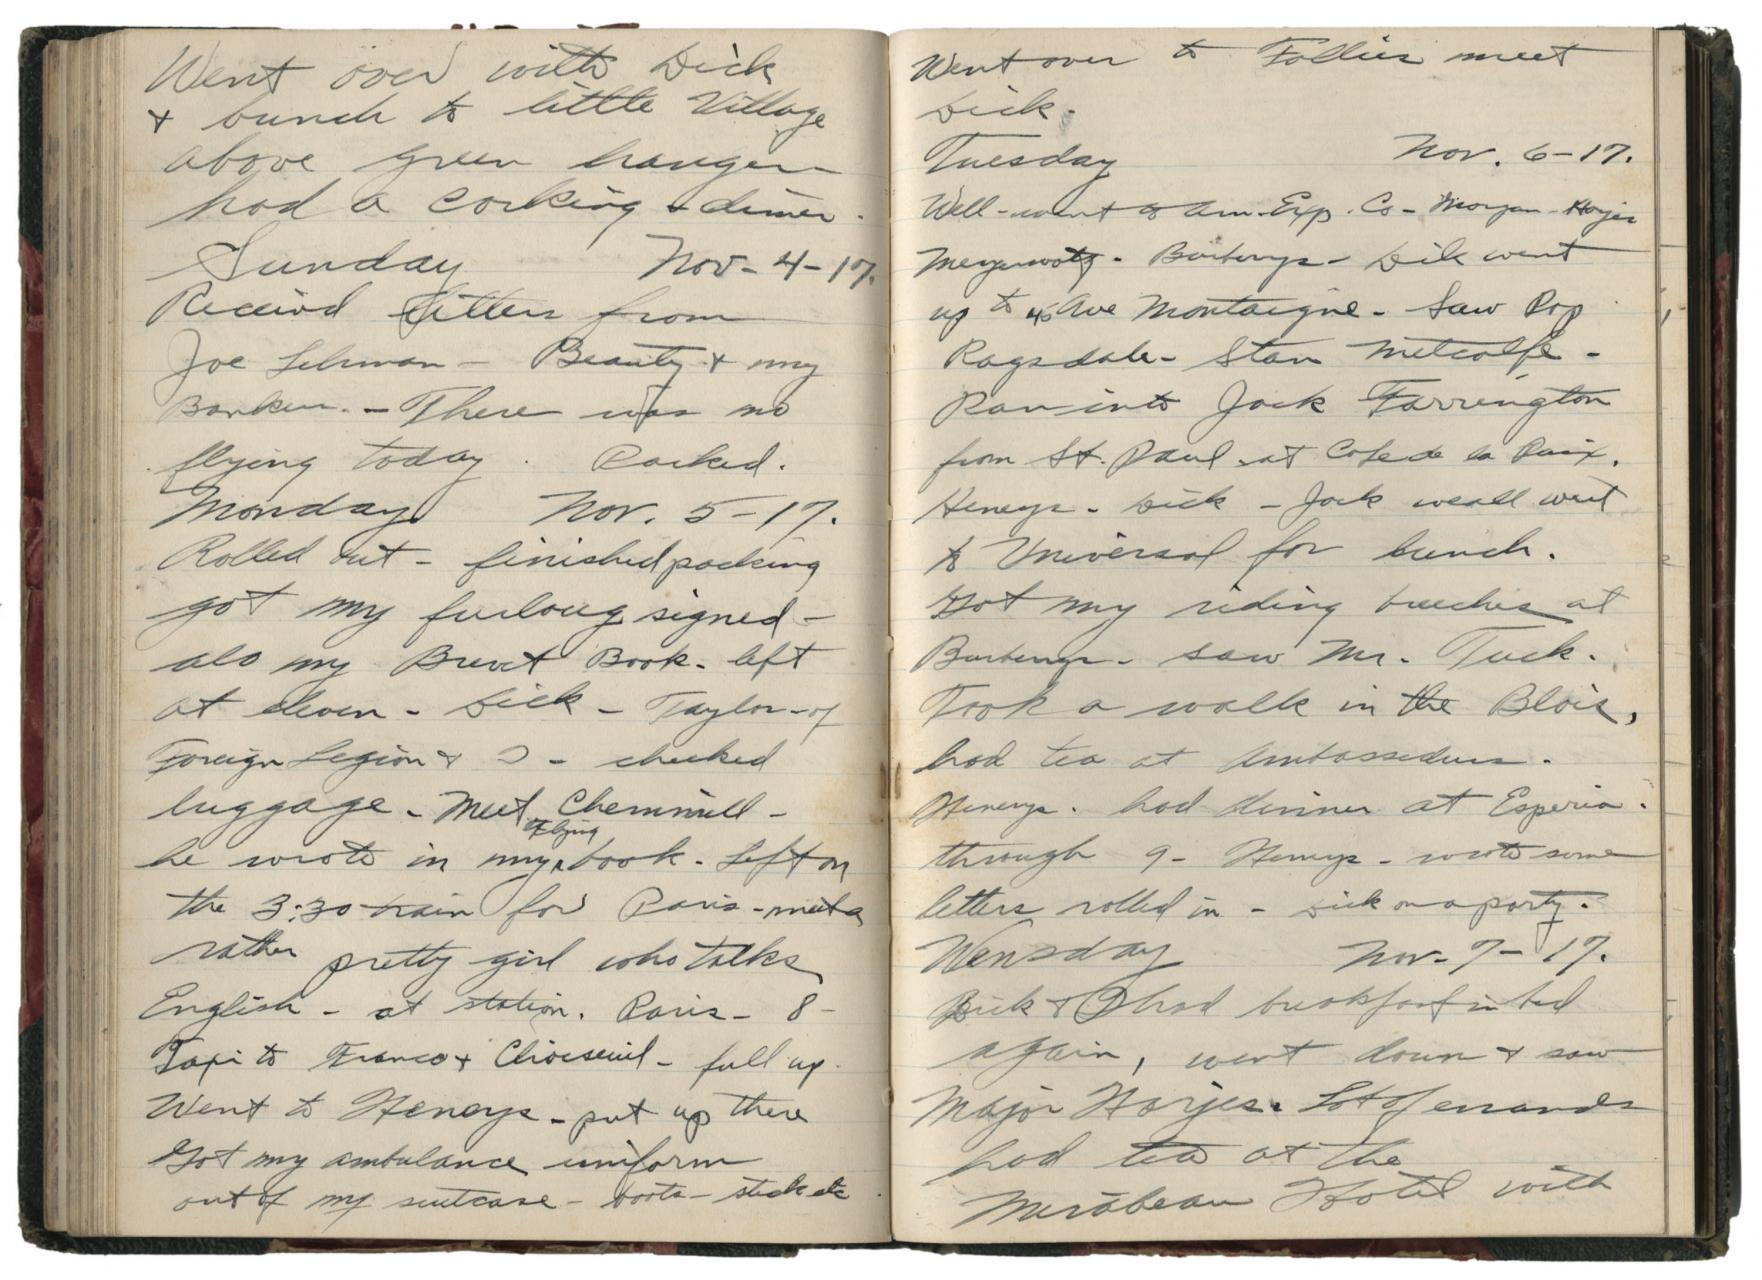 Went over with Dick
+ bunch to little Village
above green hanger
had a corking dinner.
Sunday Nov-4-17.
Receivd letters from
Joe Lehman - Beauty + my
Banker. - There was no
flying today. Packed.
Monday Nov. 5-17.
Rolled out - finished packing
got my furloug signed -
also my Brevet Book. left
at eleven - Dick - Taylor-of
Foreign Legion + I - checked
luggage - Meet
he wrote in my Flying book. Left on
the 3:30 train for Paris - meet a
rather pretty girl who talks
English - at station. Paris - 8 -
Taxi to France + Chioseuil - full up.
Went to Henrys - put up there
Got my ambulance uniform
out of my suitcase - boots - stick etc
Went over to Follies meet
Dick.
Tuesday Nov. 6-17.
Well - went to Am. Exp. Co - Morgan - Harjes
- Burberrys - Dick went
up to 45 Ave Montaigne - Saw Pop
Ragsdale - Stan Metcalfe -
Ran into Jack Farrington
from St. Paul at Cafe de la Paix.
Henrys - Dick - Jack we all went
to Universal for lunch.
Got my riding breeches at
Burberrys - saw Mr. Tuck.
Took a walk in the Blois,
had tea at Ambassedurs.
Henrys. had dinner at Esperia.
through 9 - Henrys - wrote some
letters rolled in - Dick on a party.
Wensday Nov-7-17.
Dick + I had breakfast in bed
again, went down + saw
Major Harjes. Lot of errands
had tea at the
Mirabeau Hotel with